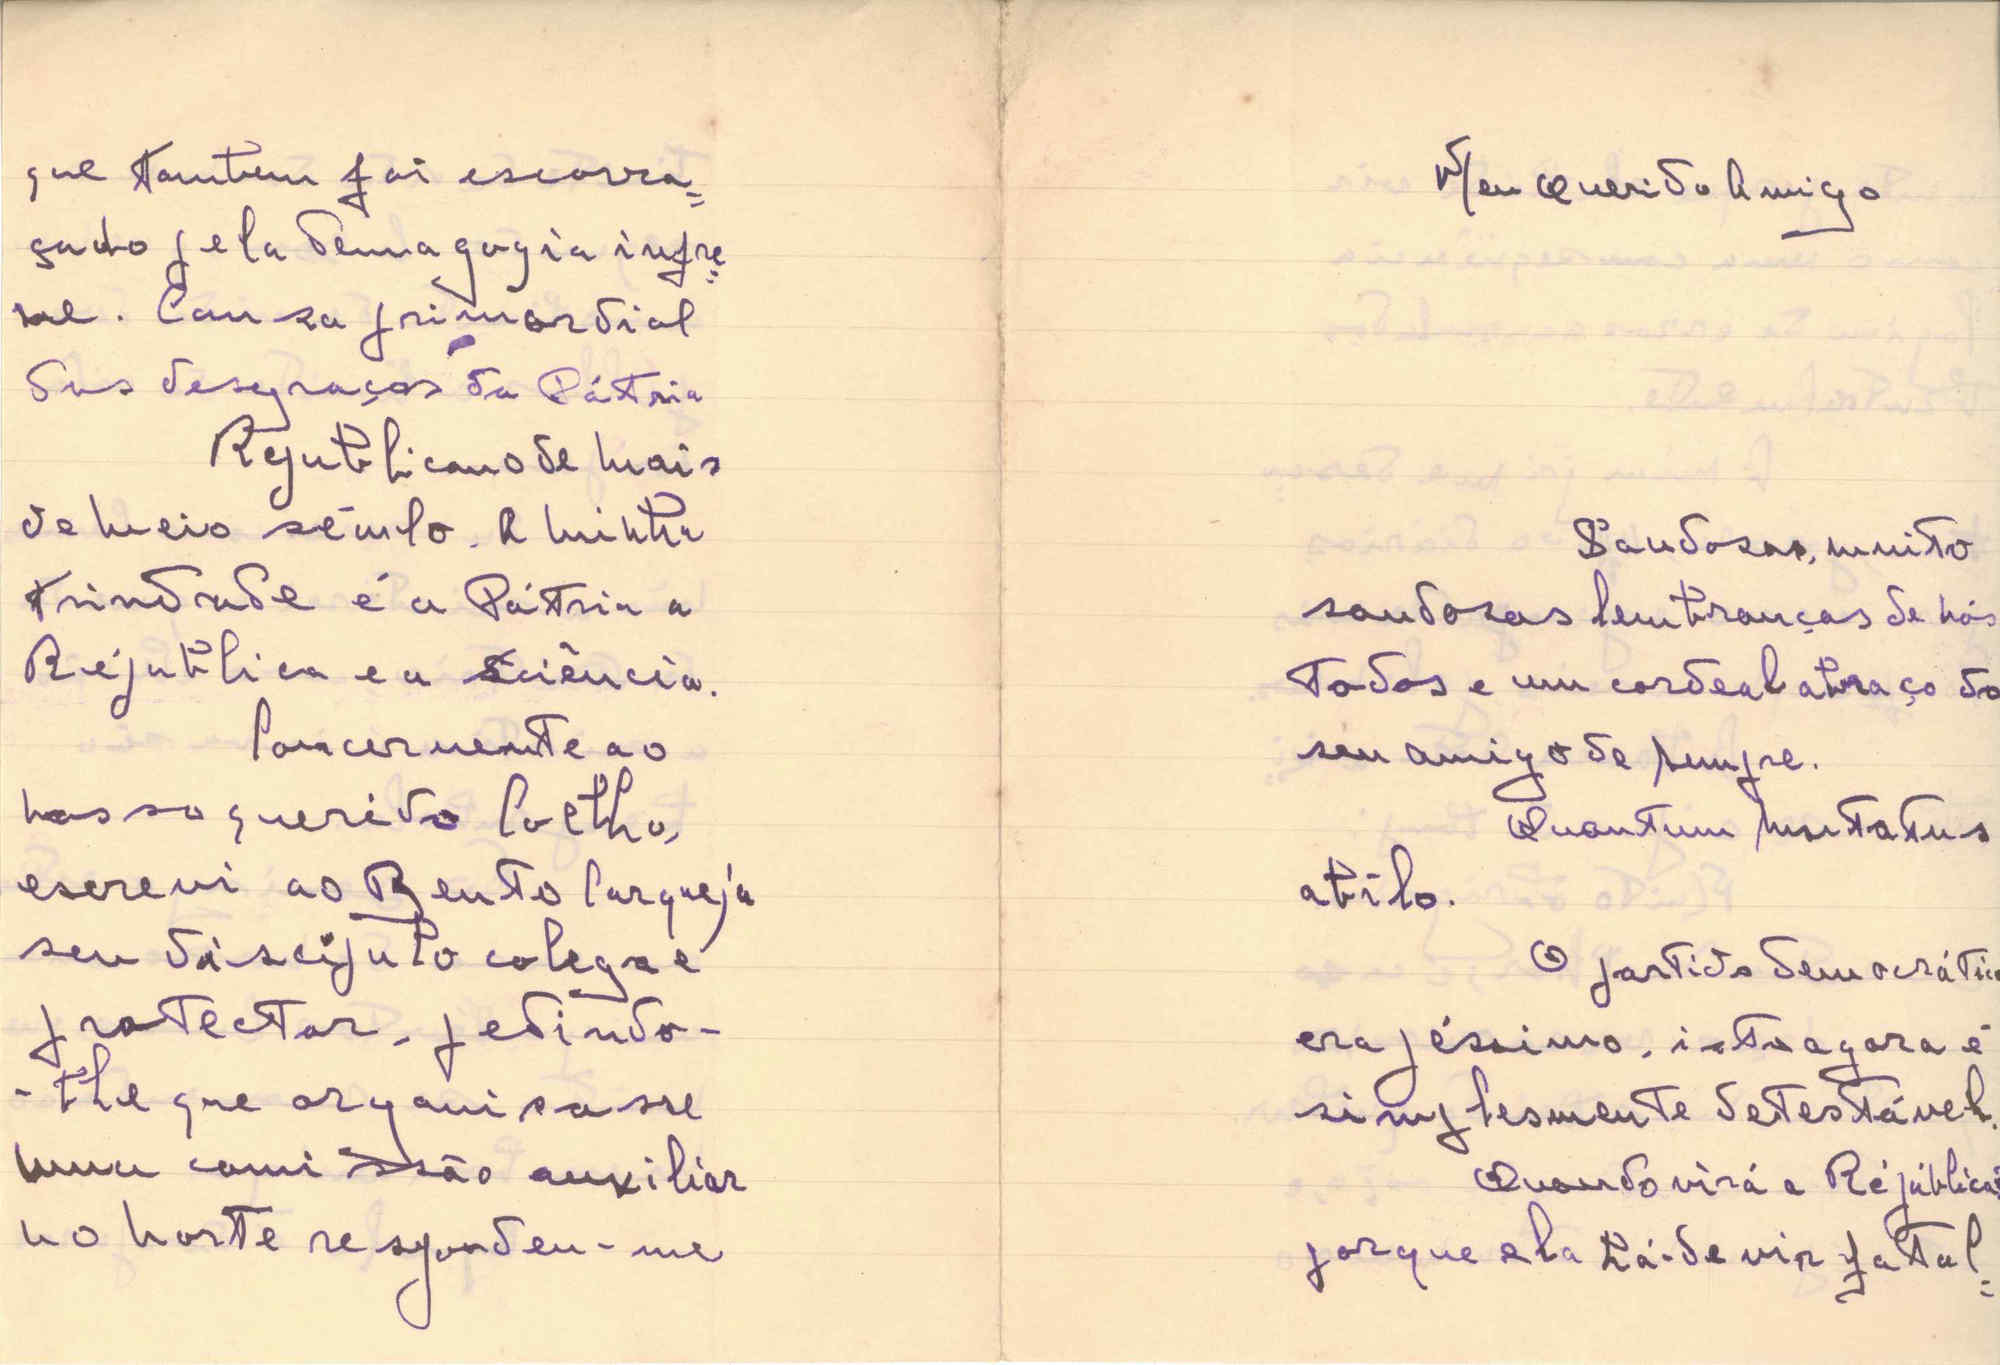 que tambem foi escorra=
çado pela demagogia infre=
ne. Causa primordial
das desgraças da Pátria
Republicano de mais
de meio século. A minha
trindade é a Pátria a
República e a Sciência.
Concernente ao
nosso querido Coelho,
escrevi ao Bento Carqueja
seu discipulo colega e
protector, pedindo-
-lhe que organisasse
uma comissão auxiliar
no norte respondeu-me
Meu Querido Amigo
Saudosas, muito
saudosas lembranças de nós
todos e um cordeal abraço do
seu amigo de sempre.
Quantum mutatus
ab ilo.
O partido democrático
era péssimo, isto agora é
simplesmente detestável.
Quando virá a República?
porque ela há-de vir fatal=